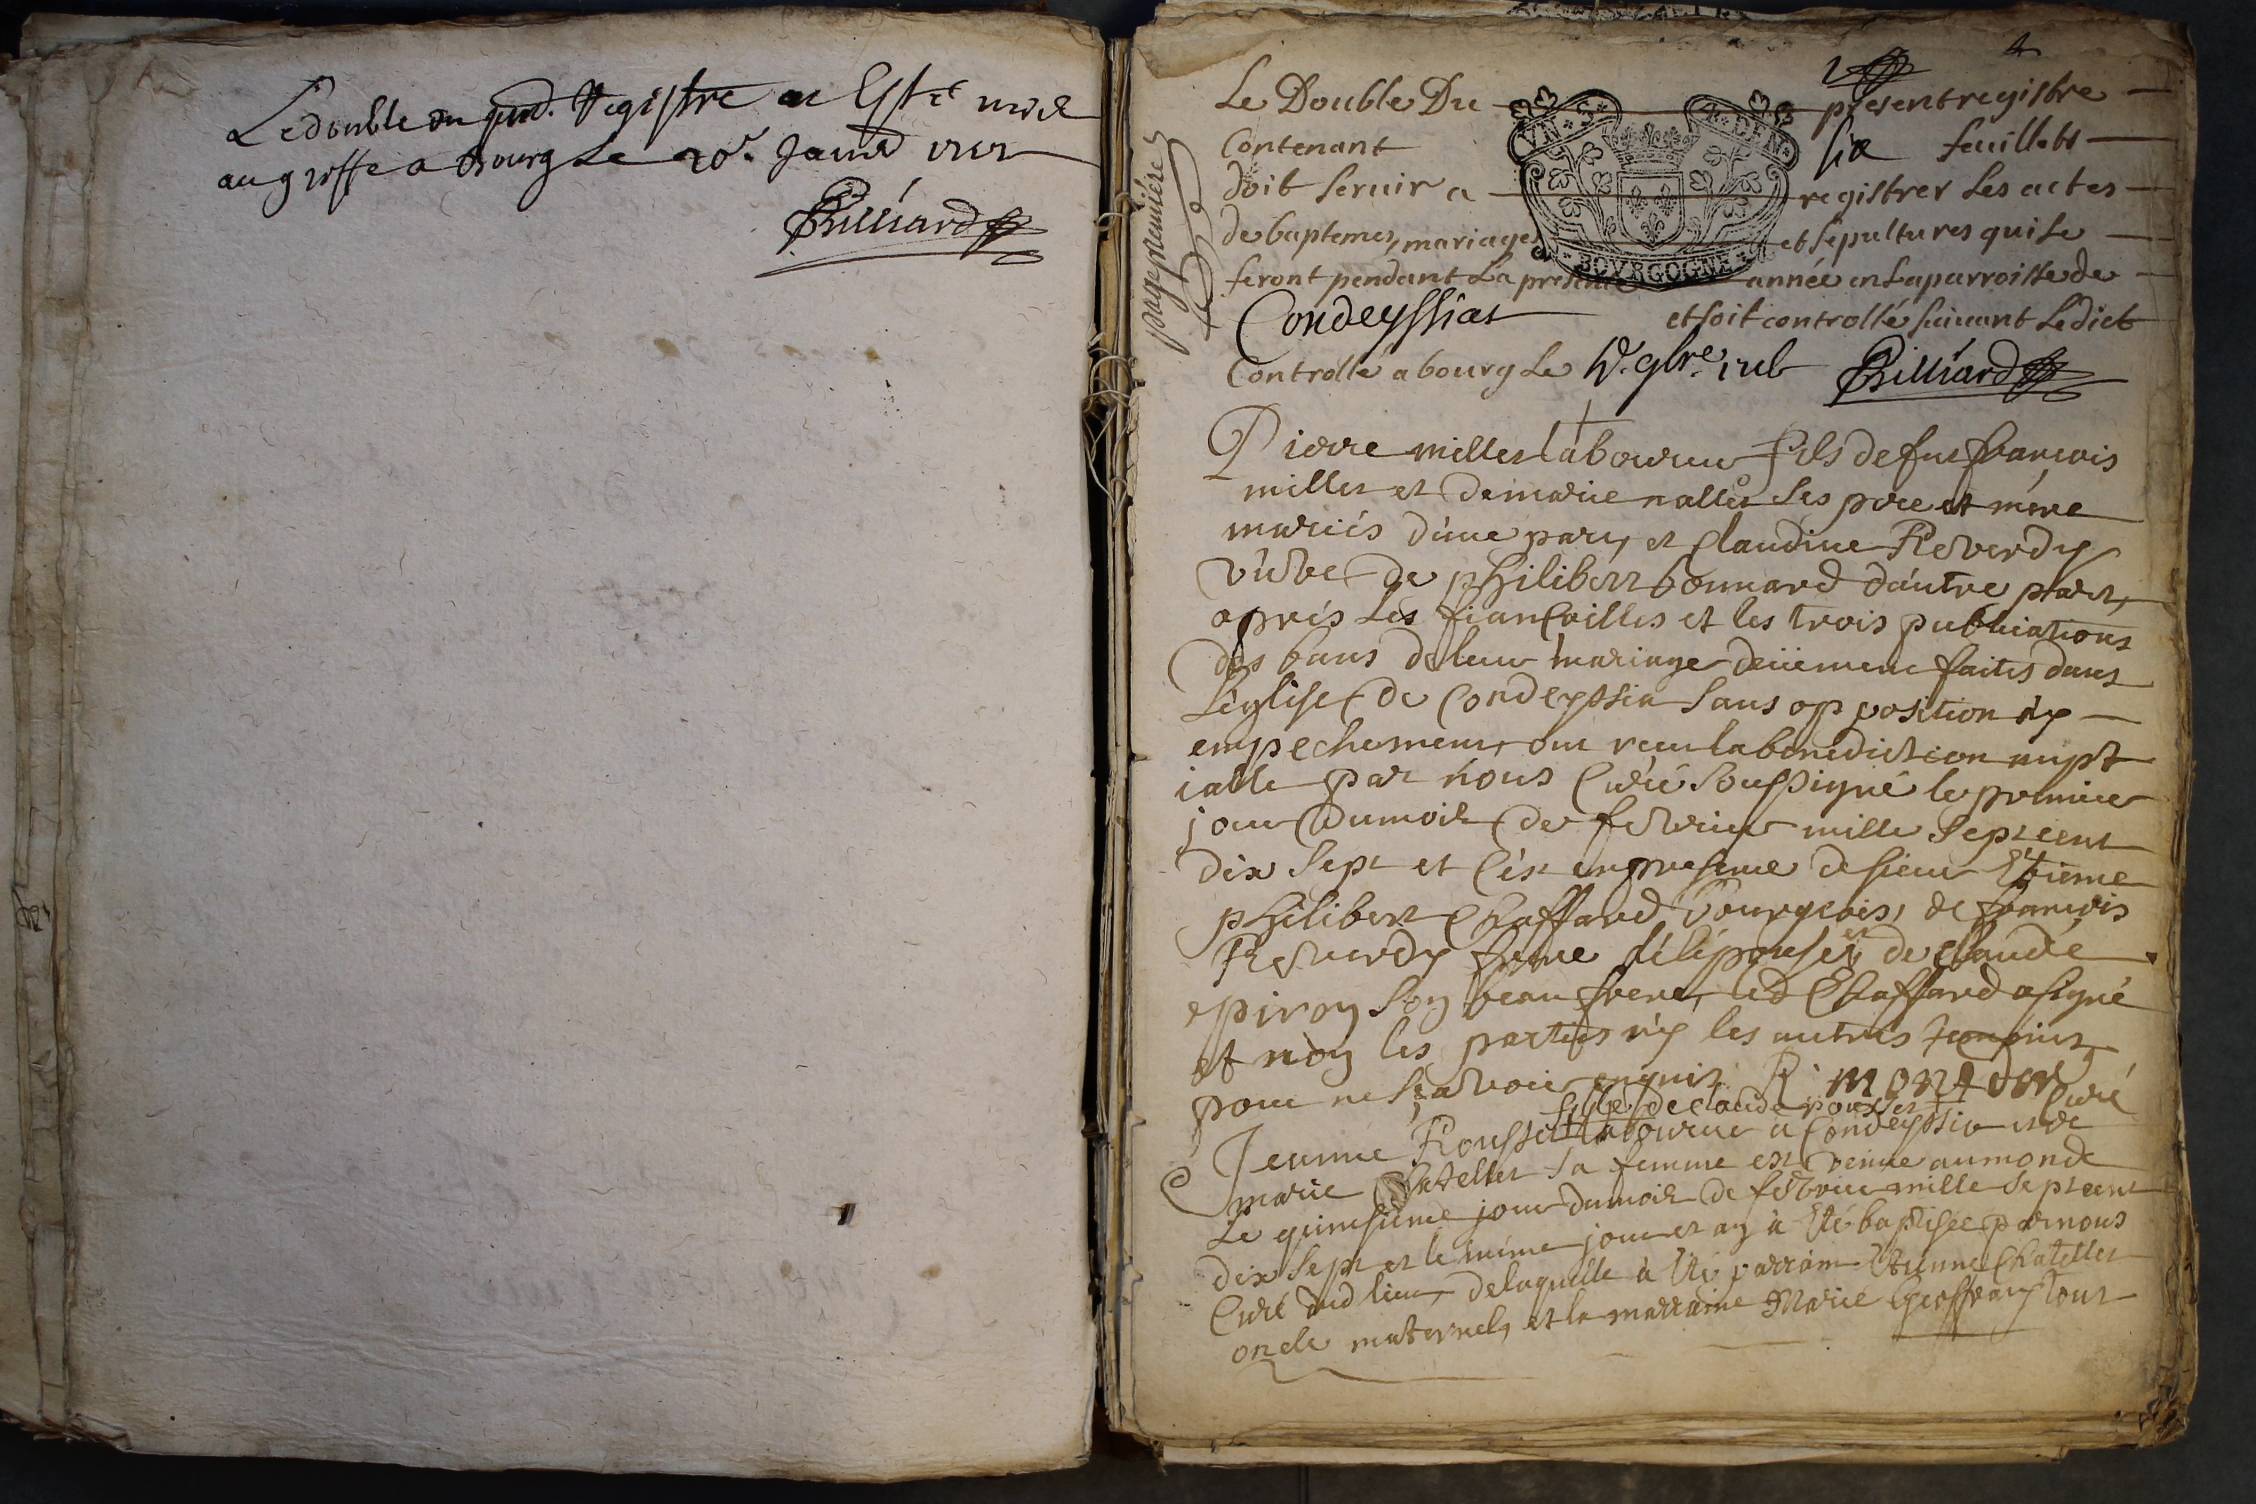 Le double du pnt. Registre a Esté mis
au greffe a bourg Le 20e. Janv
Billiard
page premiere
Le Double Du present registre
Contenant six feuillets
doit servir a registrer Les actes
de baptemes, mariages et sepultures qui se
feront pendant La presente année en La parroisse de
Condeyssiat et soit controllé suivant Ledict
Controllé a bourg Le 9bre. Billiard
VN·S· ·DEN·
·BOVRGOGNE·
Pierre millet laboureur fils de fut francois
millet et de marie nallet ses pere et mere
mariés d'une part, et Claudine Reverdy
vueve de philibert bonnard d'autre part,
aprés Les fiancailles et les trois publications
des bans de leur mariage deüement faites dans
L'eglise de Condeyssia sans opposition ny
empechement, ont receu la benediction nupt
ialle par nous Curé soussigné le premier
jour du mois de fevrier mille sept cent
dix sept et c'est en presence de sieur Etienne
philibert Chaffard bourgeois, de francois
Reverdy frere de l'epouse, et de claude
epiron son beau frere, led Chaffard a signé
et non les parties ny les autres temoins
pour ne sçavoir enquis R. montdor Curé
fille de claude rousset
Jeanne Rousset laboureur a Condeyssia et de
marie Chatellet sa femme est venue au monde
Le quinsieme jour du mois de fevrier mille sept cent
dix sept et le même jour et an à été baptisée par nous
Curé dud lieu, de laquelle à été parrain Etienne Chatellet
oncle maternel, et la marraine Marie Geoffray tout